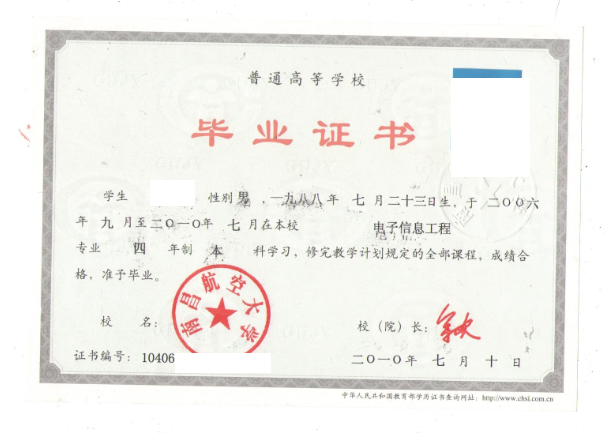 普通高等学校
毕业证书
学生 性别 男 ，一九八八年 七 月二十三日生，于 二〇〇六
年 九 月至二〇一〇年 七 月在本校 电子信息工程
专业 四 年制 本 科学习，修完教学计划规定的全部课程，成绩合
格，准予毕业。
校 名：
南昌航空大学
校（院）长：
证书编号： 10406
二〇一〇年 七 月 十 日
中华人民共和国教育部学历证书查询网址：http://www.chsi.com.cn